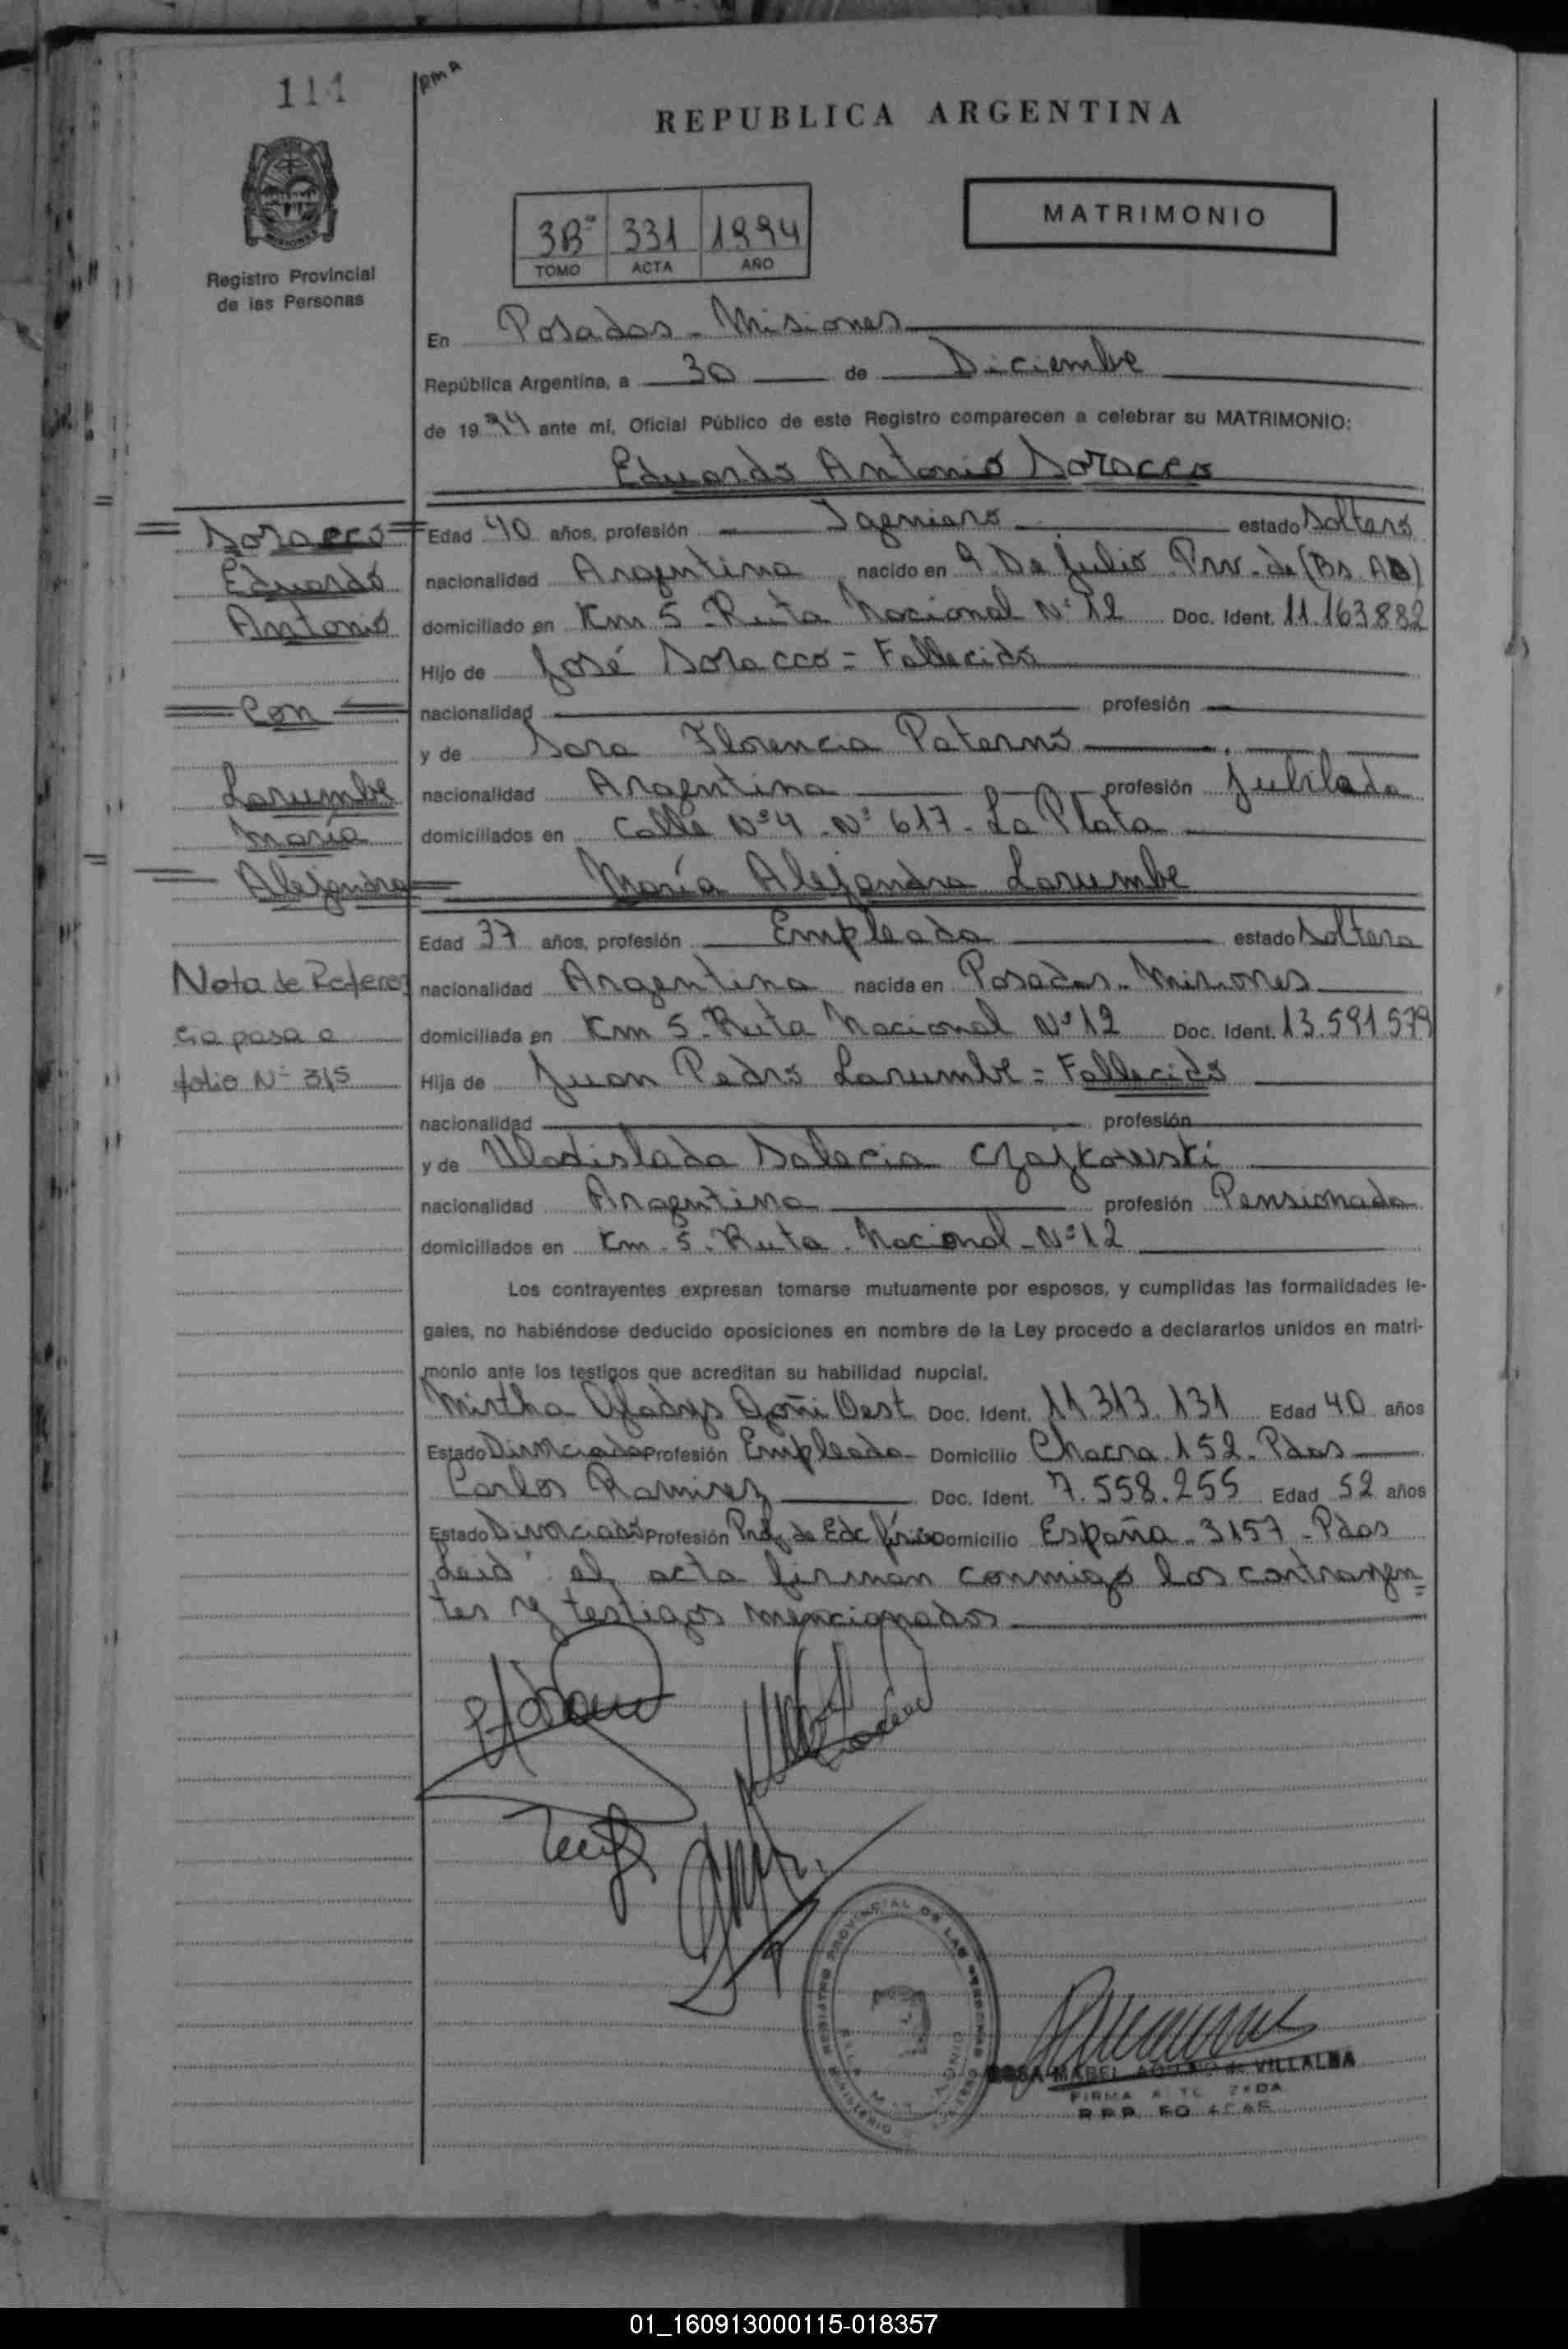 111
RMA
REPUBLICA ARGENTINA
MATRIMONIO
3Bº 331 1994
TOMO ACTA AÑO
Registro Provincial
de las Personas
En Posadas - Misiones
República Argentina, a 30 de Diciembre
de 1994 ante mí, Oficial Público de este Registro comparecen a celebrar su MATRIMONIO:
Eduardo Antonio Soracco
Edad 40 años, profesión Igeniero estado Soltero
nacionalidad Argentina nacido en 9 De Julio Prov. de (Bs As)
domiciliado en Km 5 - Ruta Nacional Nº 12 Doc. Ident. 11.163.882
Hijo de José Soracco = Fallecido
nacionalidad profesión
y de Sara Florencia Paterno
nacionalidad Argentina profesión Jubilada
domiciliados en Calle Nº 4 - Nº 617 - La Plata
María Alejandra Larumbe
Edad 37 años, profesión Empleada estado Soltera
nacionalidad Argentina nacida en Posadas - Misiones
domiciliada en Km 5 - Ruta Nacional Nº 12 Doc. Ident. 13.591.579
Hija de Juan Pedro Larumbe = Fallecido
nacionalidad profesión
y de Vladislada Salecia Czajkowski
nacionalidad Argentina profesión Pensionada
domiciliados en Km. 5. Ruta. Nacional - Nº 12
Los contrayentes expresan tomarse mutuamente por esposos, y cumplidas las formalidades le-
gales, no habiéndose deducido oposiciones en nombre de la Ley procedo a declararlos unidos en matri-
monio ante los testigos que acreditan su habilidad nupcial.
Mirtha Gladys Goñi Vest Doc. Ident. 11.313.131 Edad 40 años
Estado Divorciada Profesión Empleada - Domicilio Chacra 152 - Pdas
Carlos Ramirez Doc. Ident. 7.558.255 Edad 52 años
Estado Divorciado Profesión Prof. de Edc física Domicilio España - 3157 - Pdas
Leid el acta firman conmigo los contrayen=
tes y testigos mencionados
= Soracco =
Eduardo
Antonio
= Con =
Larumbe
María
= Alejandra =
Nota de Referen
cia pasa a
folio Nº 315
REGISTRO PROVINCIAL DE LAS PERSONAS
MINISTERIO
ROSA MABEL AQUINO de VILLALBA
FIRMA
01_160913000115-018357